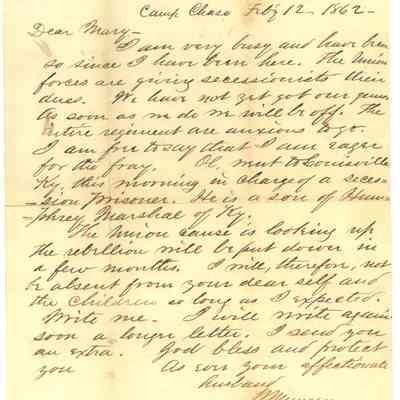 Camp Chase Feby 12 - 1862 -
Dear Mary -
I am very busy and have been
so since I have been here. The Union
forces are giving secessionists their
dues. We have not yet got our guns.
As soon as we do we will be off. The
entire regiment are anxious to go.
I am free to say that I am eager
for the fray. Ol. went to Louisville
Ky this morning in charge of a seces-
-sion prisoner. He is a son of Hum-
-phrey Marshal of Ky.
The Union cause is looking up
the rebellion will be put down in
a few months. I will, therefore, not
be absent from your dear self and
the children so long as I expected.
Write me. I will write again
soon a longer letter. I send you
an extra. God bless and protect
you As ever your affectionate
husband